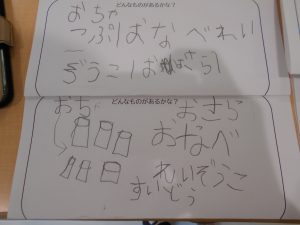 どんなものがあるかな？
おちゃ
こっぷ おなべ れい
ぞうこ おさら
どんなものがあるかな？
おち
おさら
おなべ
れいぞうこ
すいどう